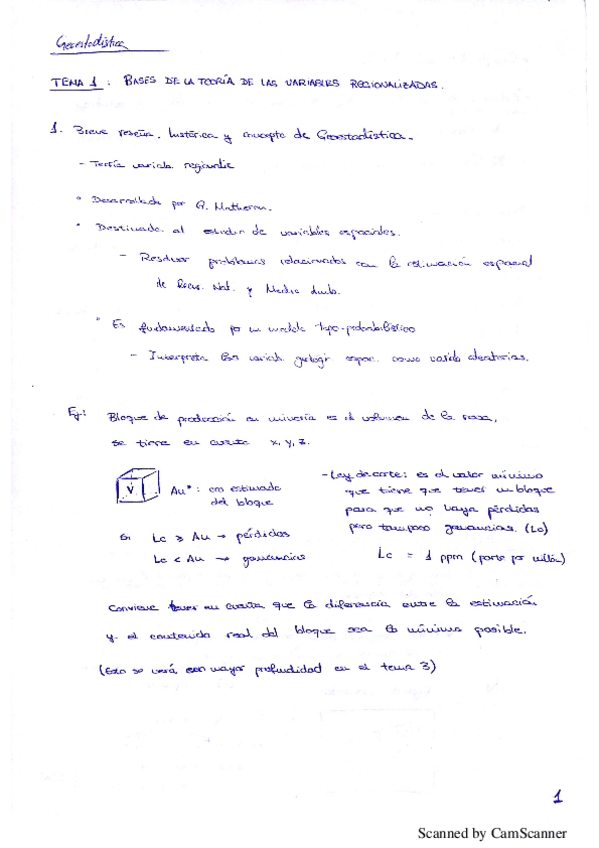 Geoestadística
TEMA 1 : BASES DE LA TEORÍA DE LAS VARIABLES REGIONALIZADAS.
1. Breve reseña histórica y concepto de Geoestadística.
- Teoría variab. regionaliz
• Desarrollada por G. Matheron.
• Destinada al estudio de variables espaciales.
- Resolver problemas relacionados con la estimación espacial
de Recus. Nat. y Medio Amb.
• Es fundamentado por un modelo topo-probabilístico
- Interpreta las variab. espac. como variab aleatorias.
Ej: Bloque de producción en minería es el volumen de la roca,
se tiene en cuenta x, y, z.
V
Au* : oro estimado
del bloque
Si Lc ⩾ Au → pérdidas
Lc < Au → ganancias
- Ley de corte: es el valor mínimo
que tiene que tener un bloque
para que no haya pérdidas
pero tampoco ganancias. (Lc)
Lc = 1 ppm (parte por millón)
Conviene tener en cuenta que la diferencia entre la estimación
y el contenido real del bloque sea la mínima posible.
(Esto se verá con mayor profundidad en el tema 3)
1
Scanned by CamScanner